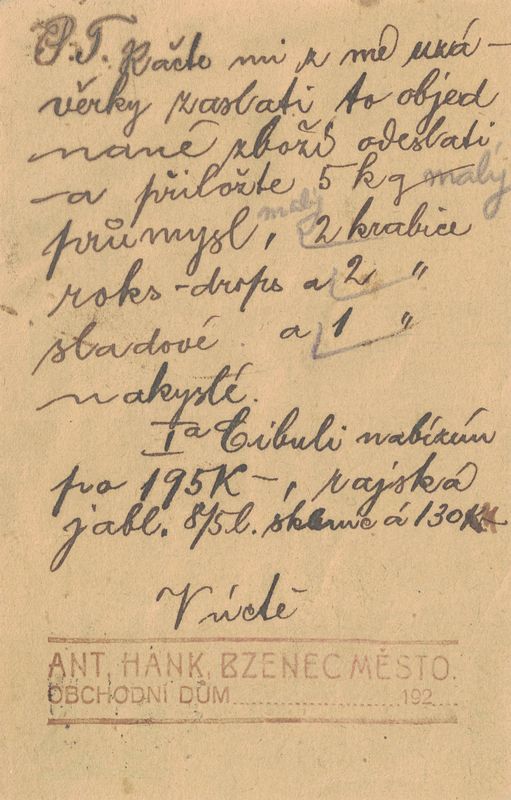 P.T. Račte mi z mé uzá-
věrky zaslati, to objed
nané zboží odeslati
a přiložte 5 kg malý
malý
průmysl, 2 krabice
roks-drops a 2 "
sladové a 1 "
nakyslé.
Ia Cibuli nabízím
po 195K-, rajská
jabl. 8/5l. á 130K
V úctě
ANT. HANK, BZENEC MĚSTO.
OBCHODNÍ DŮM 192